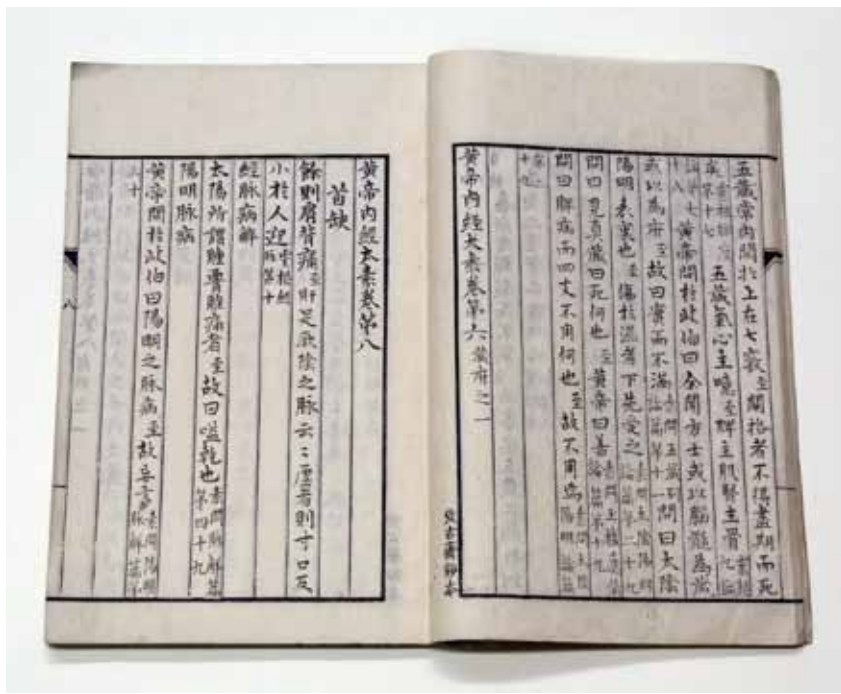 五藏常內閱於上在七竅至關格者不得盡期而死
五藏氣心主噫至脾主肌腎主骨
黃帝問於岐伯曰余聞方士或以腦髓為藏
或以為府至故曰實而不滿
問曰太陰
陽明表裏也至傷於濕者下先受之
問曰見真藏曰死何也至黃帝曰善
問曰脾病而四支不用何也至故不用焉
黃帝內經太素卷第六
黃帝內經太素卷第八
首缺
餘則肩背痛至肝足厥陰之脉云云虛者則寸口反
小於人迎
經脉病解
太陽所謂腫腰脽痛者至故曰嗌乾也
第四十九
陽明脉病
黃帝問於岐伯曰陽明之脉病至故妄言
三十
八